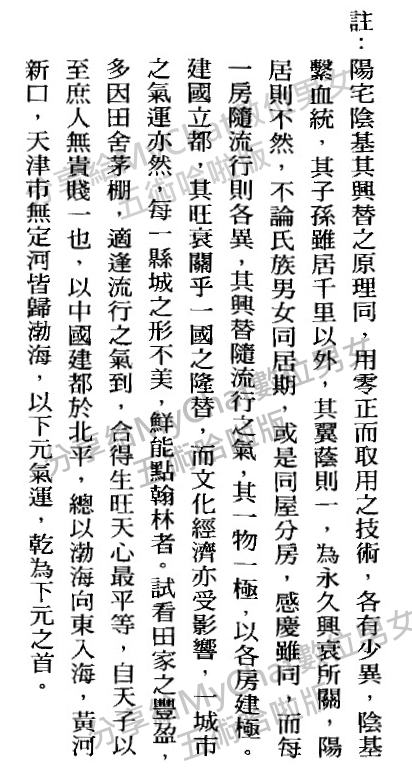 註：陽宅陰基其興替之原理同，用零正而取用之技術，各有少異，陰基
繫血統，其子孫雖居千里以外，其翼蔭則一，為永久興衰所關，陽
居則不然，不論氏族男女同居期，或是同屋分房，感慶雖同，而每
一房隨流行則各異，其興替隨流行之氣，其一物一極，以各房建極。
建國立都，其旺衰關乎一國之隆替，而文化經濟亦受影響，一城市
之氣運亦然，每一縣城之形不美，鮮能點翰林者。試看田家之豐盈，
多因田舍茅棚，適逢流行之氣到，合得生旺天心最平等，自天子以
至庶人無貴賤一也，以中國建都於北平，總以渤海向東入海，黃河
新口，天津市無定河皆歸渤海，以下元氣運，乾為下元之首。
分享給MyChat數位男女
五術哈啦版
分享給MyChat數位男女
五術哈啦版
分享給MyChat數位男女
五術哈啦版